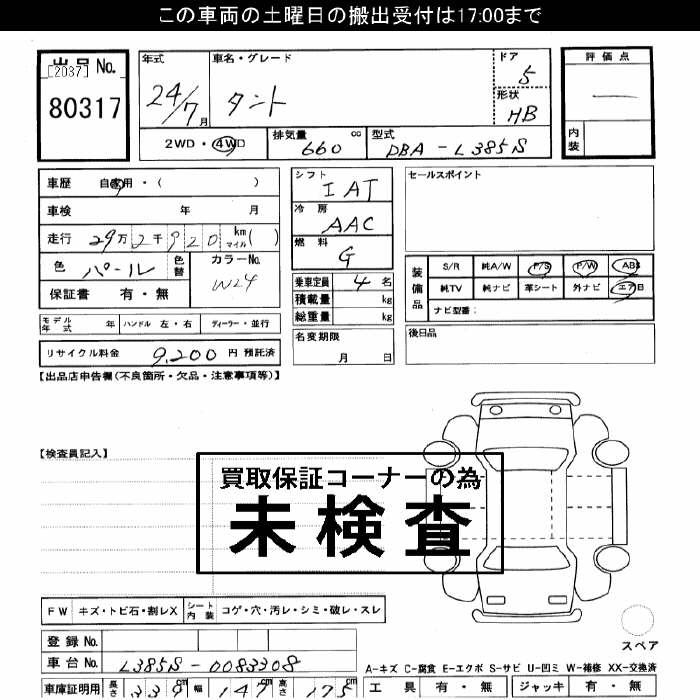 この車両の土曜日の搬出受付は17:00まで
出品 No.
[2037]
80317
年式
24/7月
車名・グレード
タント
ドア
5
形状
HB
評価点
—
内装
2WD・4WD
排気量
660 cc
型式
DBA-L385S
車歴 自家用・( )
車検 年 月
走行 29万2千920 km マイル( )
色 パール 色替
カラーNo.
W24
保証書 有・無
シフト
IAT
冷房
AAC
燃料
G
乗車定員 4 名
積載量 kg
総重量 kg
セールスポイント
装備品
S/R 純A/W P/S P/W ABS
純TV 純ナビ 革シート 外ナビ エアB
ナビ型番:
モデル年式 年 ハンドル 左・右 ディーラー・並行
名変期限
月 日
後日品
リサイクル料金 9,200 円 預託済
【出品店申告欄(不良箇所・欠品・注意事項等)】
【検査員記入】
買取保証コーナーの為
未検査
FW キズ・トビ石・割レX シート内装 コゲ・穴・汚レ・シミ・破レ・スレ
スペア
登録No.
車台No. L385S-0083308
A-キズ C-腐食 E-エクボ S-サビ U-凹ミ W-補修 XX-交換済
車庫証明用 長さ 339 cm 幅 147 cm 高さ 175 cm
工具 有・無 ジャッキ 有・無